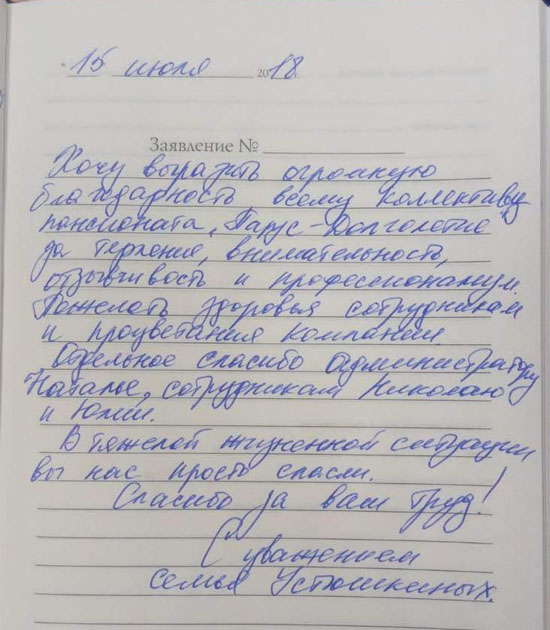 15 июля 2018г.
Заявление №
Хочу выразить огромную
благодарность всему коллективу
пансионата "Парус-Долголетие
за терпение, внимательность,
отзывчивость и профессионализм.
Пожелать здоровья сотрудникам
и процветания компании.
Отдельное спасибо администратору
Наталье, сотрудникам Николаю
и Юлии.
В тяжелой жизненной ситуации
вы нас просто спасли.
Спасибо за ваш труд!
С уважением
семья Устюшкиных.